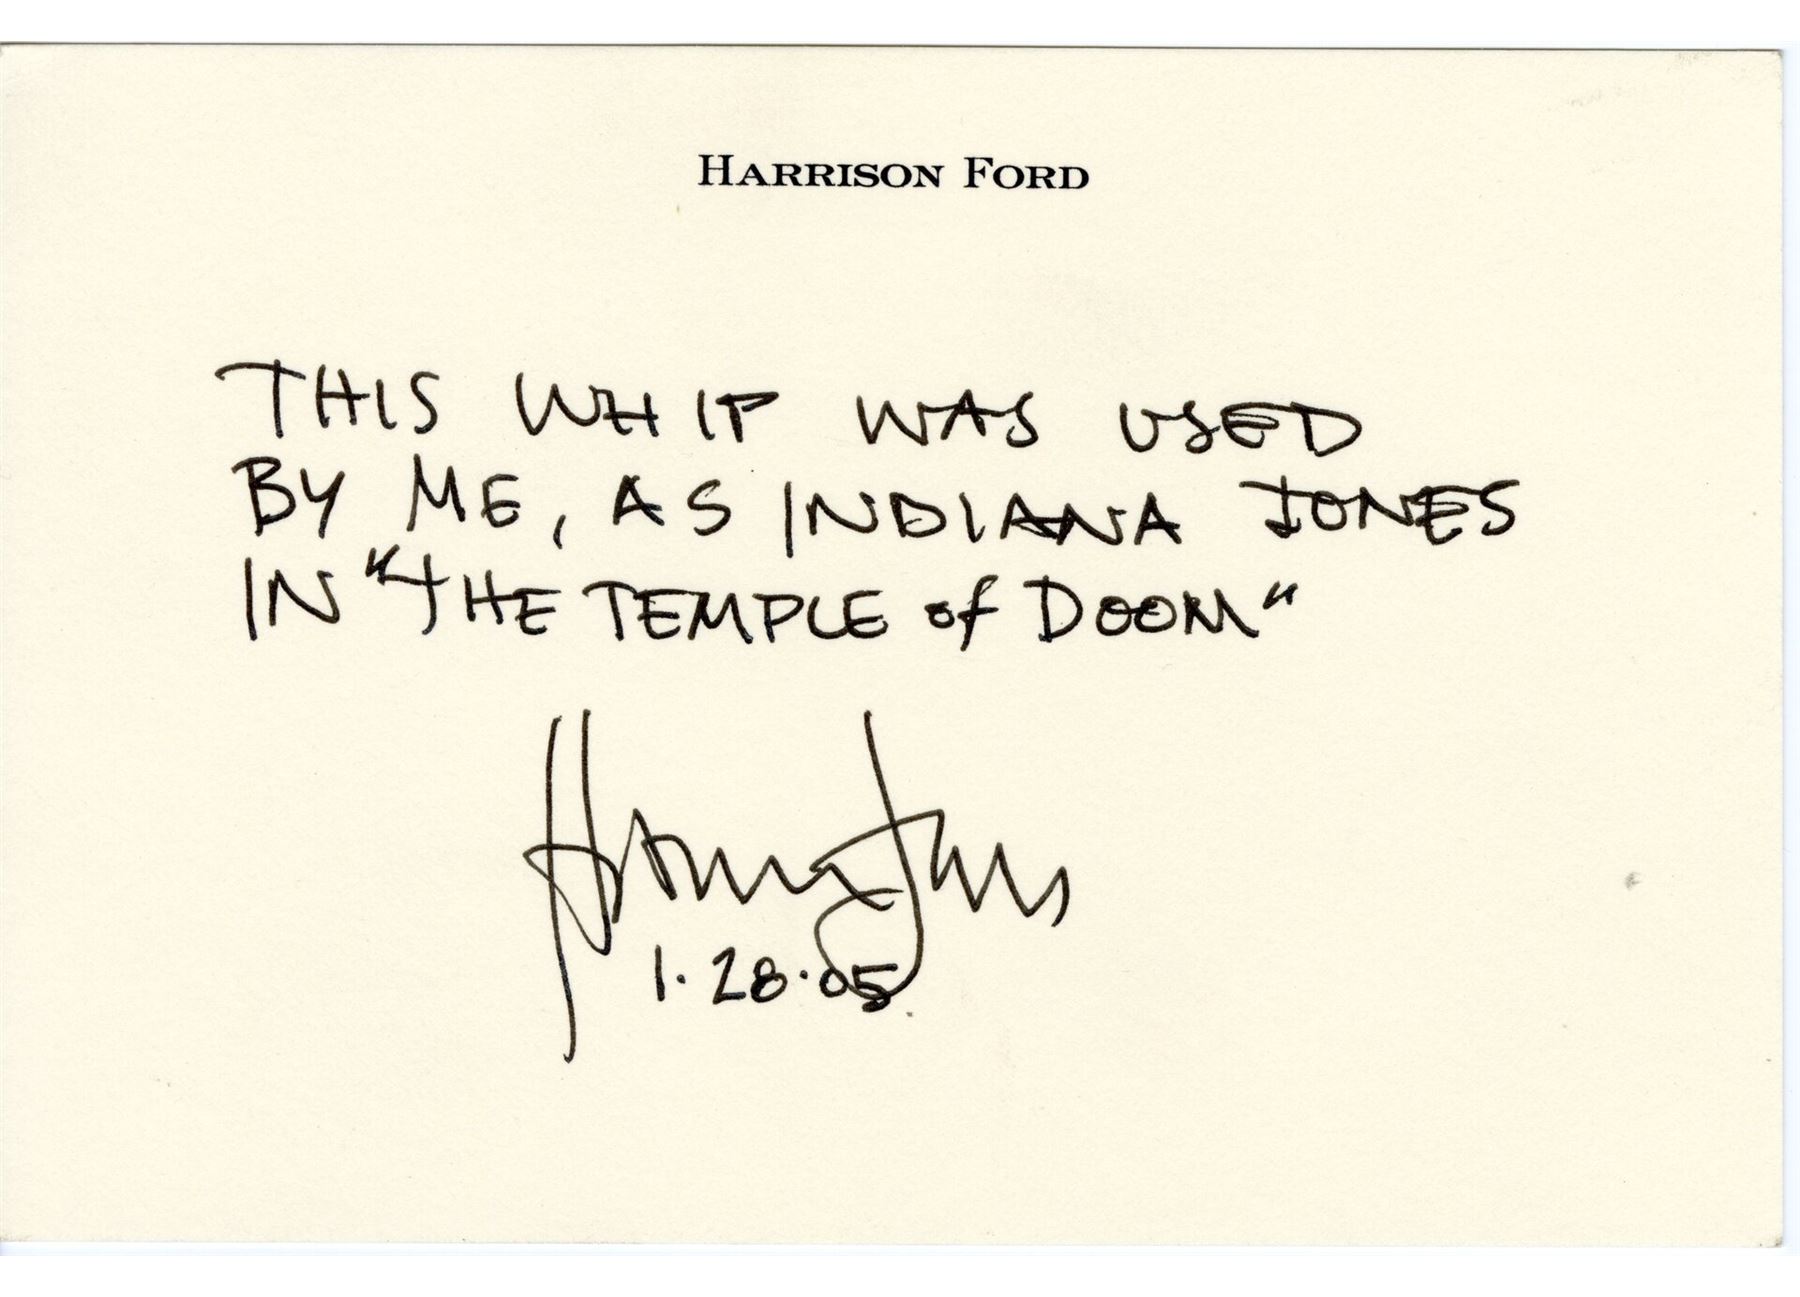 HARRISON FORD
THIS WHIP WAS USED
BY ME, AS INDIANA JONES
IN "THE TEMPLE of DOOM"
Harrison Ford
1·28·05